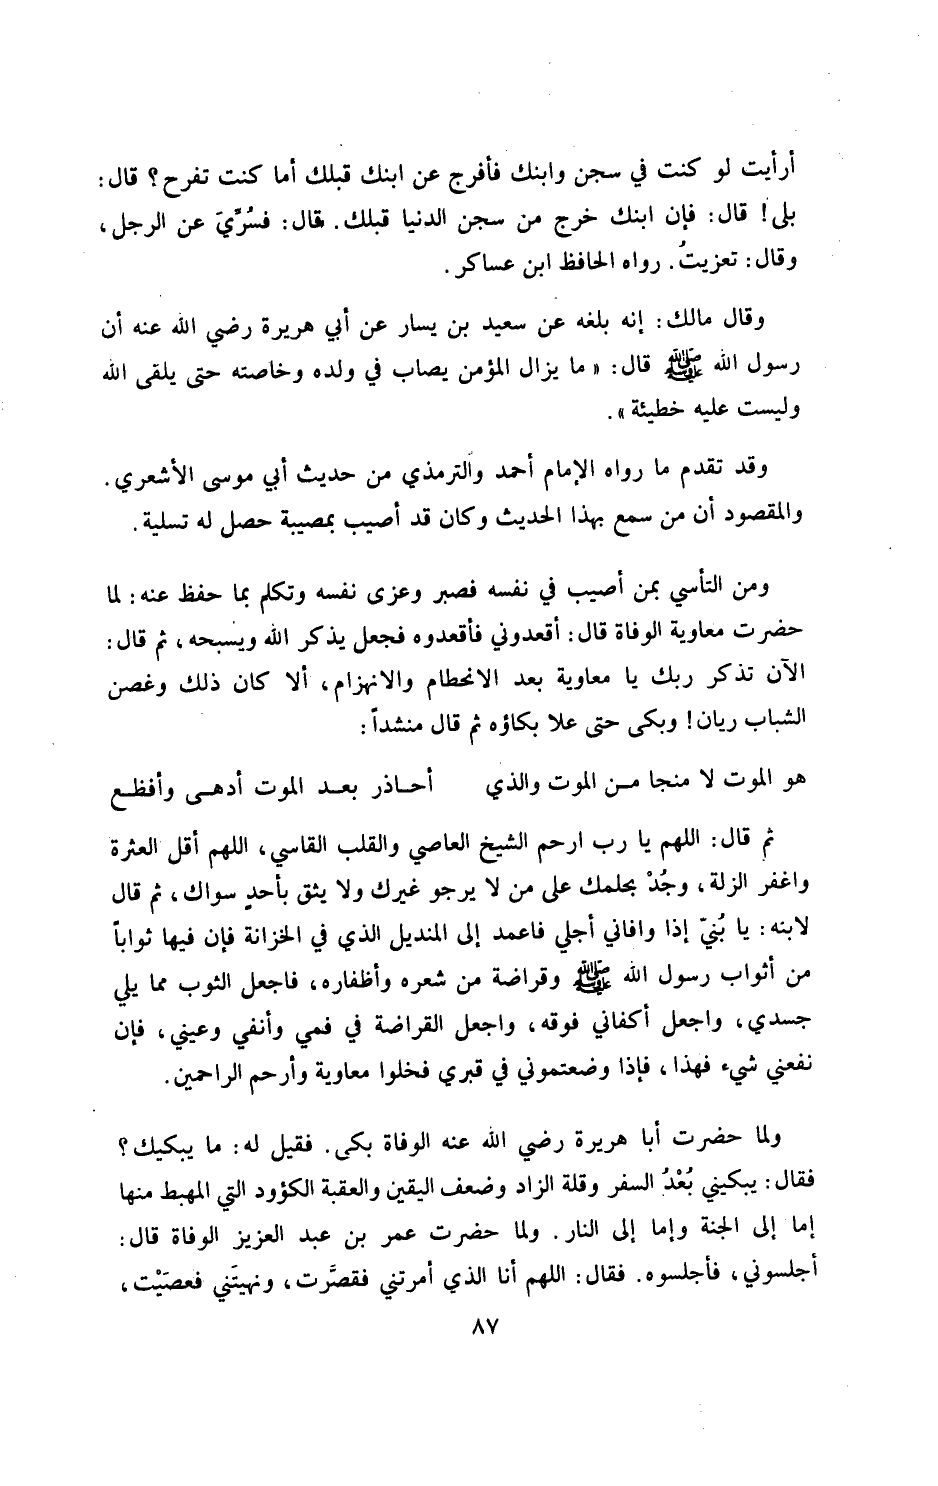 أرأيت لو كنت في سجن وابنك فأفرج عن ابنك قبلك أما كنت تفرح؟ قال:
بلى! قال: فإن ابنك خرج من سجن الدنيا قبلك. قال: فسُرِّيَ عن الرجل،
وقال: تعزيتُ. رواه الحافظ ابن عساكر.
وقال مالك: إنه بلغه عن سعيد بن يسار عن أبي هريرة رضي الله عنه أن
رسول الله ﷺ قال: «ما يزال المؤمن يصاب في ولده وخاصته حتى يلقى الله
وليست عليه خطيئة».
وقد تقدم ما رواه الإمام أحمد والترمذي من حديث أبي موسى الأشعري.
والمقصود أن من سمع بهذا الحديث وكان قد أصيب بمصيبة حصل له تسلية.
ومن التأسي بمن أصيب في نفسه فصبر وعزى نفسه وتكلم بما حفظ عنه: لما
حضرت معاوية الوفاة قال: أقعدوني فأقعدوه فجعل يذكر الله ويسبحه، ثم قال:
الآن تذكر ربك يا معاوية بعد الانحطام والانهزام، ألا كان ذلك وغصن
الشباب ريان! وبكى حتى علا بكاؤه ثم قال منشداً:
هو الموت لا منجا مـن الموت والذي    أحـاذر بعـد الموت أدهـى وأفظـع
ثم قال: اللهم يا رب ارحم الشيخ العاصي والقلب القاسي، اللهم أقل العثرة
واغفر الزلة، وجُدْ بحلمك على من لا يرجو غيرك ولا يثق بأحدٍ سواك، ثم قال
لابنه: يا بُنيّ إذا وافاني أجلي فاعمد إلى المنديل الذي في الخزانة فإن فيها ثواباً
من أثواب رسول الله ﷺ وقراضة من شعره وأظفاره، فاجعل الثوب مما يلي
جسدي، واجعل أكفاني فوقه، واجعل القراضة في فمي وأنفي وعيني، فإن
نفعني شيء فهذا، فإذا وضعتموني في قبري فخلوا معاوية وأرحم الراحمين.
ولما حضرت أبا هريرة رضي الله عنه الوفاة بكى. فقيل له: ما يبكيك؟
فقال: يبكيني بُعْدُ السفر وقلة الزاد وضعف اليقين والعقبة الكؤود التي المهبط منها
إما إلى الجنة وإما إلى النار. ولما حضرت عمر بن عبد العزيز الوفاة قال:
أجلسوني، فأجلسوه. فقال: اللهم أنا الذي أمرتني فقصَّرت، ونهيتَني فعصَيْت،
٨٧